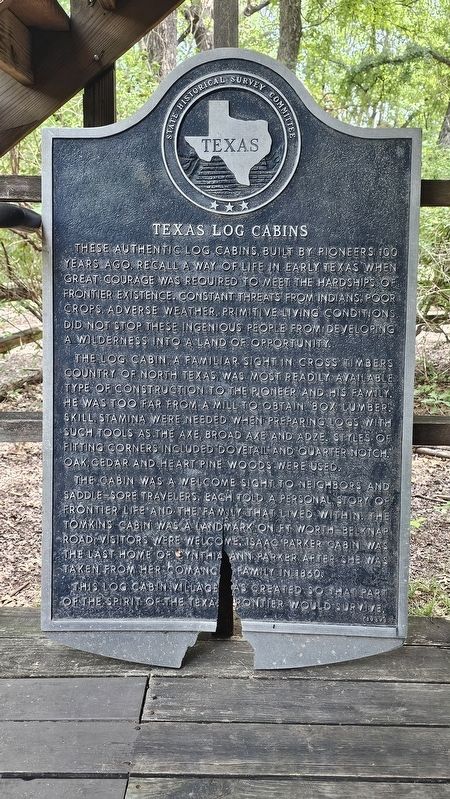 STATE HISTORICAL SURVEY COMMITTEE
TEXAS
TEXAS LOG CABINS
THESE AUTHENTIC LOG CABINS, BUILT BY PIONEERS 100
YEARS AGO, RECALL A WAY OF LIFE IN EARLY TEXAS WHEN
GREAT COURAGE WAS REQUIRED TO MEET THE HARDSHIPS OF
FRONTIER EXISTENCE. CONSTANT THREATS FROM INDIANS, POOR
CROPS, ADVERSE WEATHER, PRIMITIVE LIVING CONDITIONS
DID NOT STOP THESE INGENIOUS PEOPLE FROM DEVELOPING
A WILDERNESS INTO A LAND OF OPPORTUNITY.
THE LOG CABIN, A FAMILIAR SIGHT IN CROSS TIMBERS
COUNTRY OF NORTH TEXAS, WAS MOST READILY AVAILABLE
TYPE OF CONSTRUCTION TO THE PIONEER AND HIS FAMILY.
HE WAS TOO FAR FROM A MILL TO OBTAIN "BOX LUMBER."
SKILL, STAMINA WERE NEEDED WHEN PREPARING LOGS WITH
SUCH TOOLS AS THE AXE, BROAD AXE AND ADZE. STYLES OF
FITTING CORNERS INCLUDED DOVETAIL AND QUARTER NOTCH.
OAK, CEDAR AND HEART PINE WOODS WERE USED.
THE CABIN WAS A WELCOME SIGHT TO NEIGHBORS AND
SADDLE-SORE TRAVELERS. EACH TOLD A PERSONAL STORY OF
FRONTIER LIFE AND THE FAMILY THAT LIVED WITHIN. THE
TOMKINS CABIN WAS A LANDMARK ON FT. WORTH-BELKNAP
ROAD; VISITORS WERE WELCOME. ISAAC PARKER CABIN WAS
THE LAST HOME OF CYNTHIA ANN PARKER AFTER SHE WAS
TAKEN FROM HER COMANCHE FAMILY IN 1860.
THIS LOG CABIN VILLAGE WAS CREATED SO THAT PART
OF THE SPIRIT OF THE TEXAS FRONTIER WOULD SURVIVE.